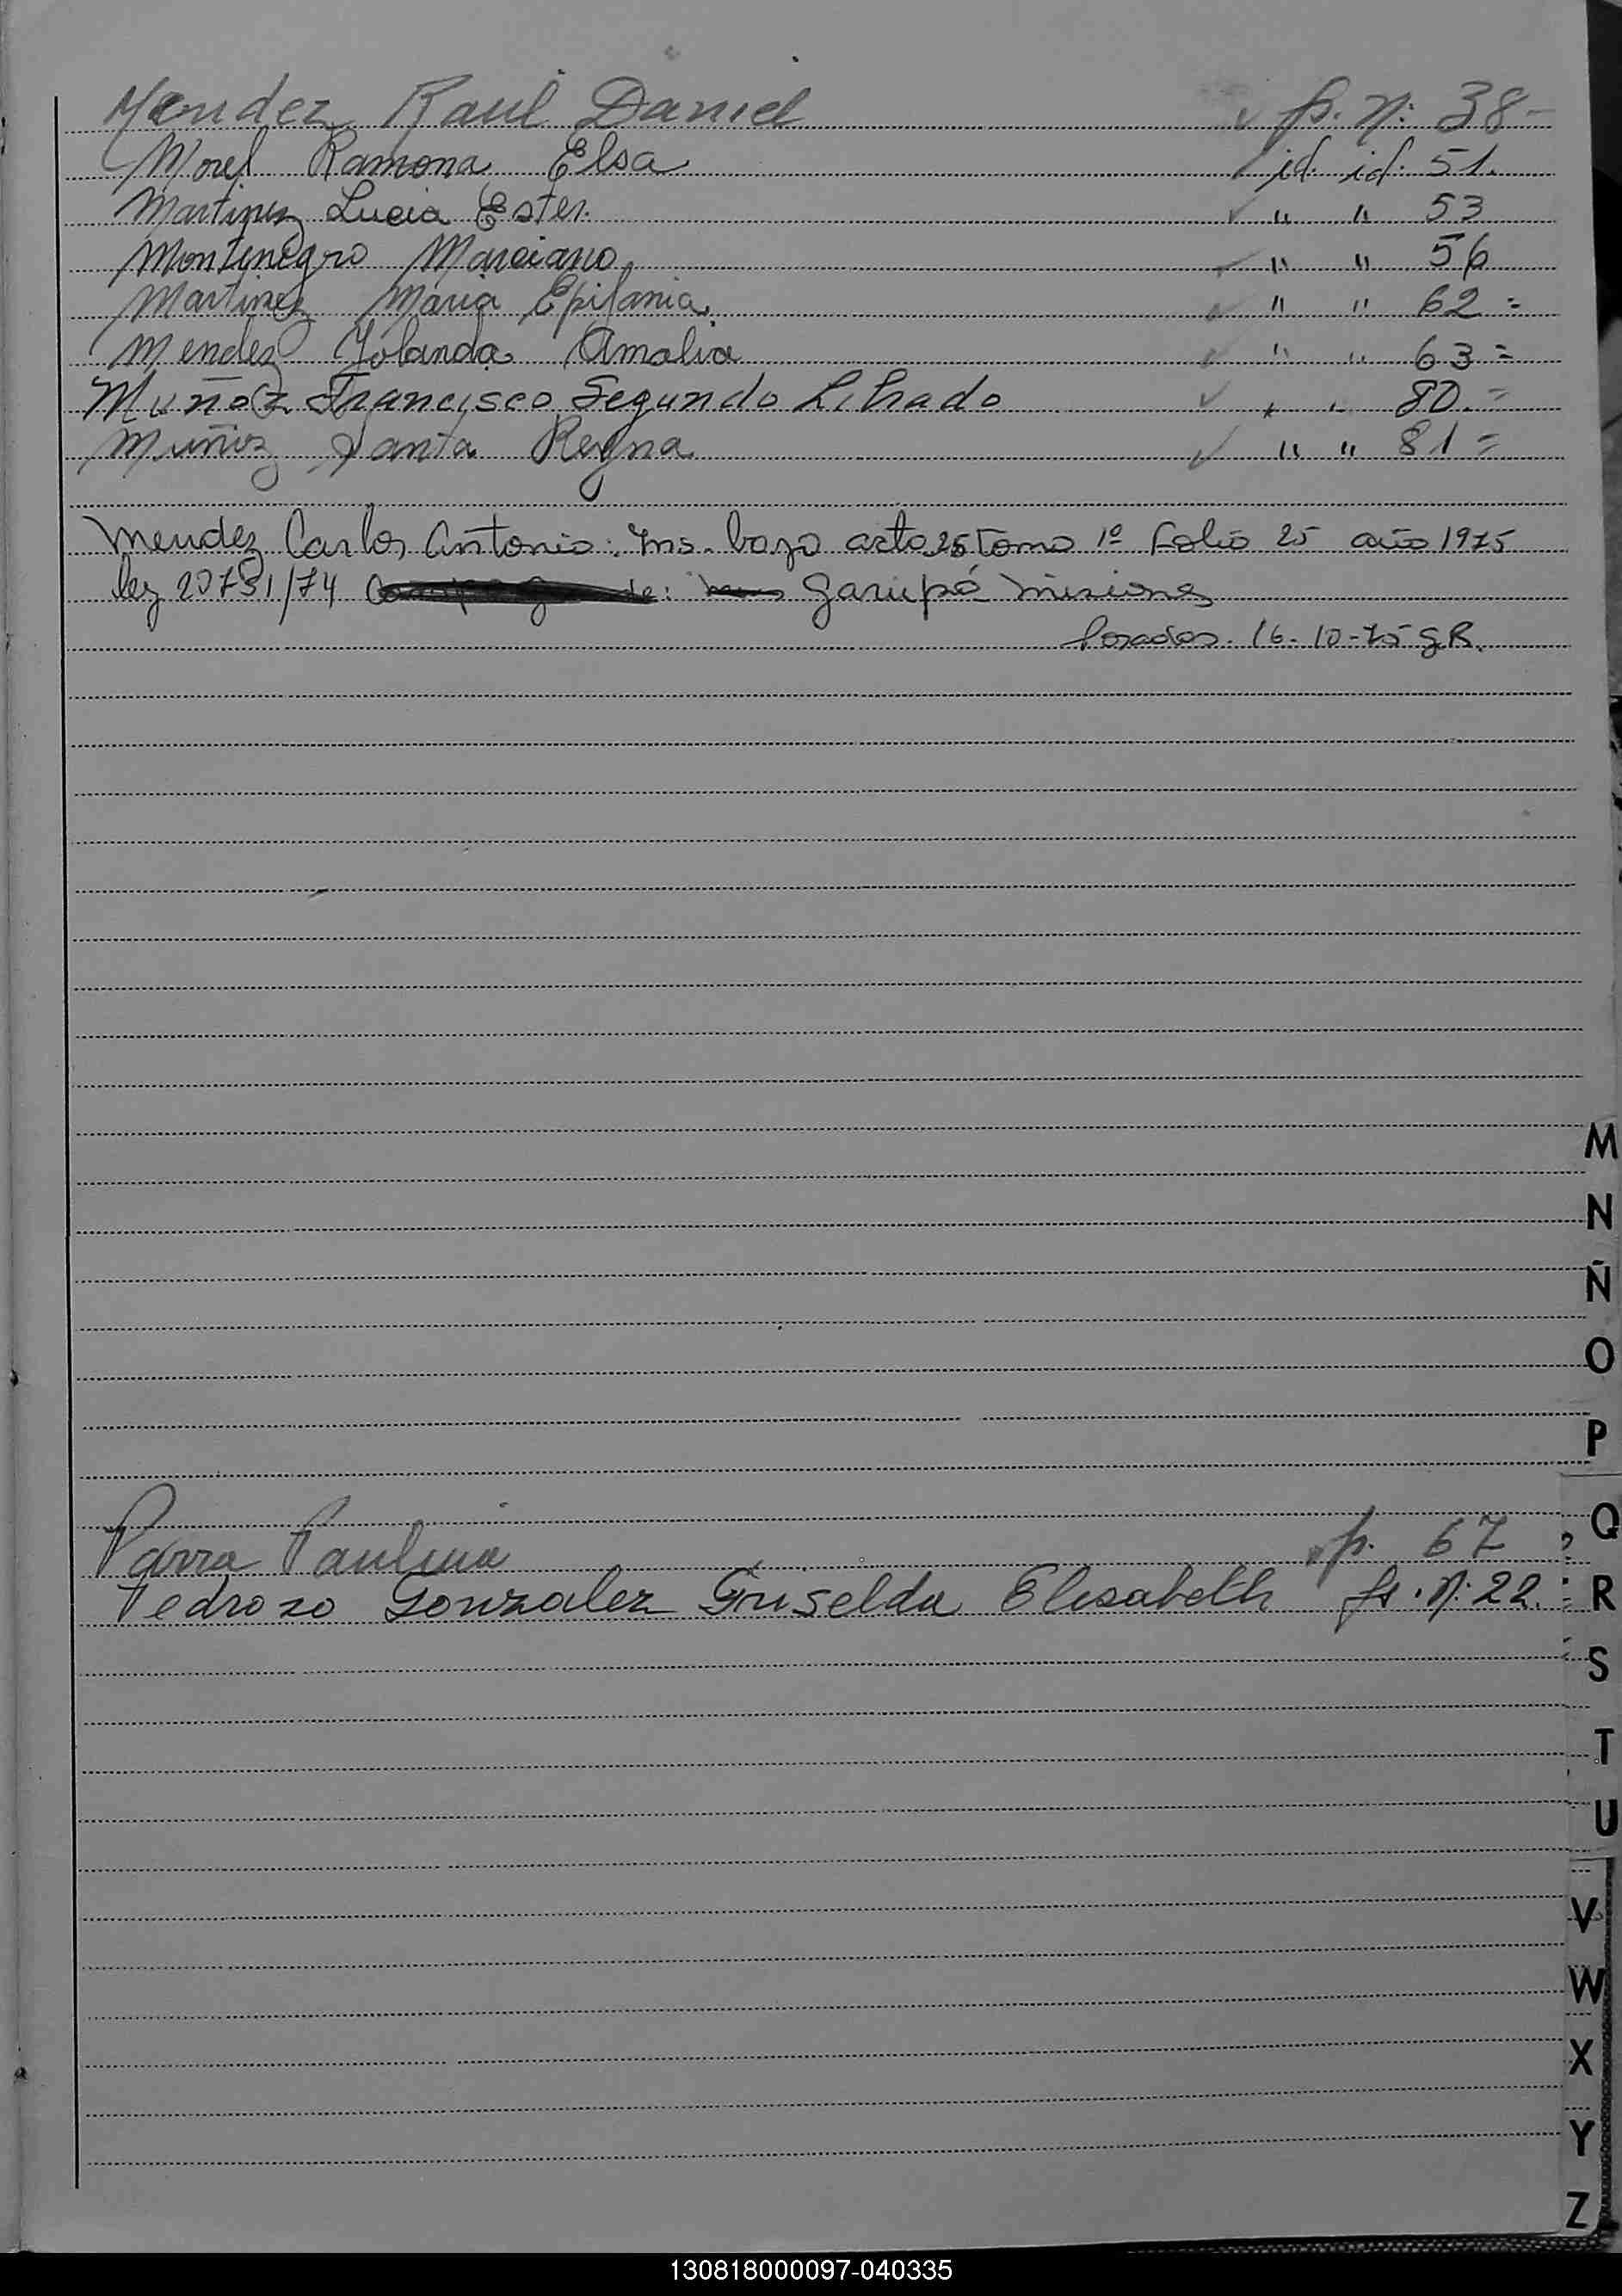 Mendez Raul Daniel ✓ f. N: 38-
Morel Ramona Elsa ✓ id. id: 51.
Martinez Lucia Ester. ✓ " " 53
Montenegro Marciano ✓ " " 56
Martinez Maria Epifania. ✓ " " 62=
Mendez Yolanda Amalia ✓ " " 63=
Muñoz Francisco Segundo Librado ✓ " " 80.=
Muñoz Santa Reyna ✓ " " 81=
Mendez Carlos Antonio: Ins. bajo acta 25 Tomo 1º Folio 25 año 1975
ley 20751/74 Garupá Misiones
Posadas. 16-10-75 GR.
M
N
Ñ
O
P
Q
Parra Paulina f. 67
Pedrozo Gonzalez Griselda Elisabeth fs. N: 22.=
R
S
T
U
V
W
X
Y
Z
130818000097-040335